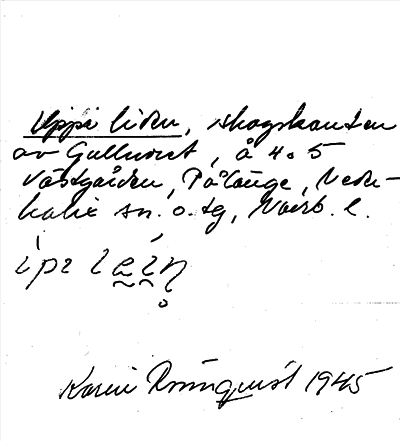 Uppi liden, skogskanten
av Gullmoret, å 4 o 5
Västgården, Pålänge, Neder-
kalix sn. o. tg, Norrb. l.
Karin Rönnquist 1945